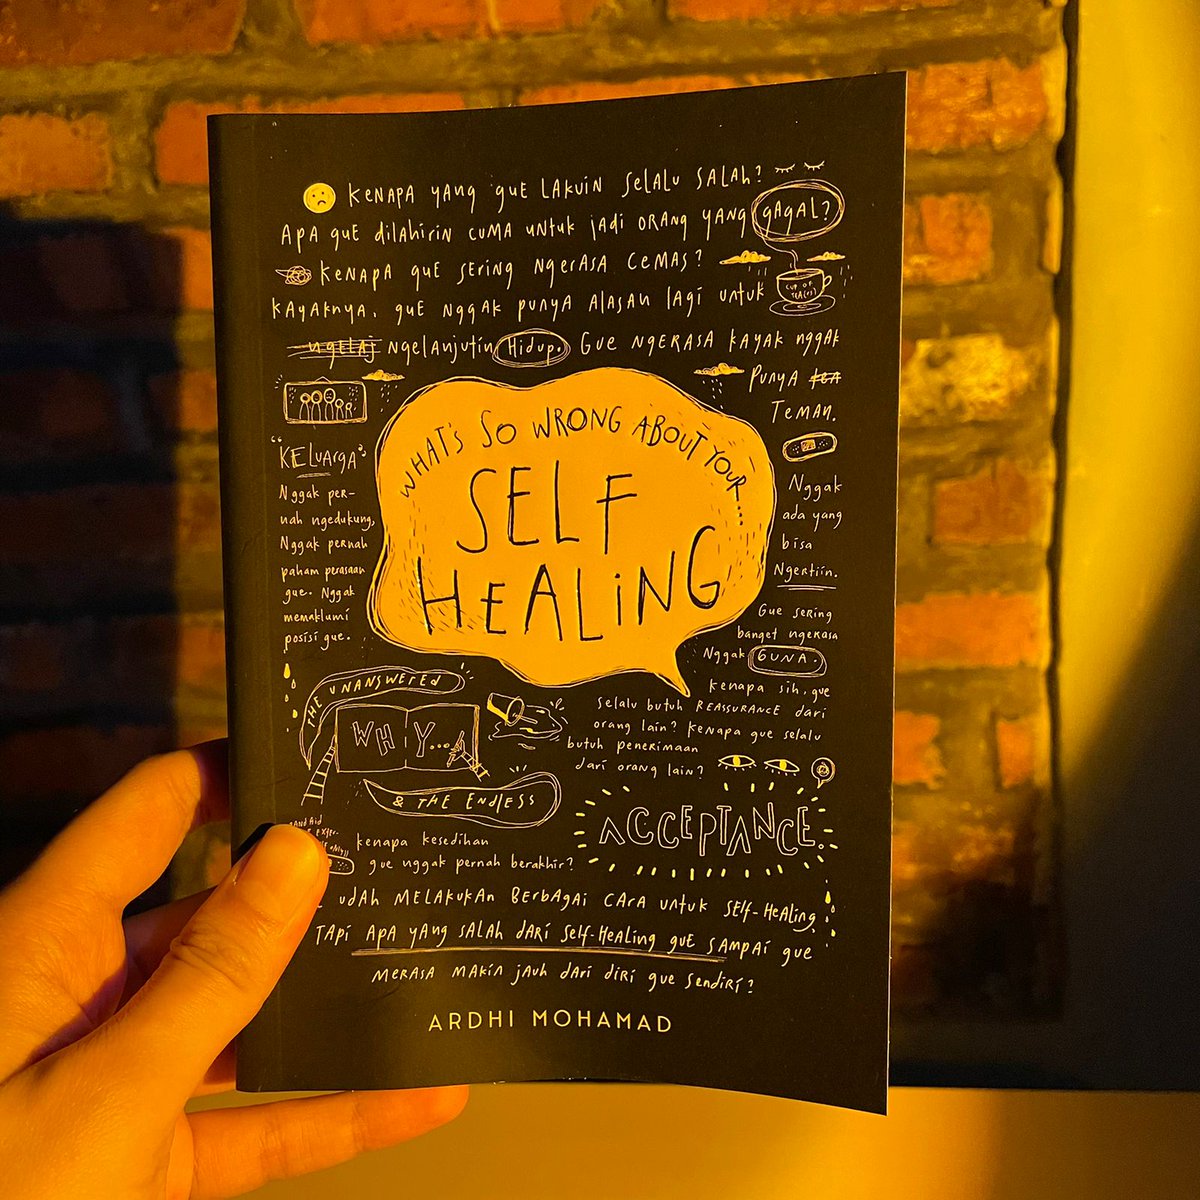 KENAPA YANG GUE LAKUIN SELALU SALAH?
APA GUE DILAHIRIN CUMA UNTUK JADI ORANG YANG GAGAL?
KENAPA GUE SERING NGERASA CEMAS?
KAYAKNYA, GUE NGGAK PUNYA ALASAN LAGI UNTUK
CUP OF TEA(R)
NGELAJ NGELANJUTIN HIDUP. GUE NGERASA KAYAK NGGAK
PUNYA TEA
TEMAN.
WHAT'S SO WRONG ABOUT YOUR...
SELF
HEALING
"KELUARGA"
Nggak per-
nah ngedukung,
Nggak pernah
paham perasaan
gue. Nggak
memaklumi
posisi gue.
Nggak
ada yang
bisa
Ngertiin.
Gue sering
banget ngerasa
Nggak GUNA.
kenapa sih, gue
selalu butuh REASSURANCE dari
orang lain? Kenapa gue selalu
butuh penerimaan
dari orang lain?
THE UNANSWERED
WHY...
& THE ENDLESS
ACCEPTANCE.
kenapa kesedihan
gue nggak pernah berakhir?
UDAH MELAKUKAN BERBAGAI CARA UNTUK SELF-HEALING,
TAPI APA YANG SALAH DARI SELF-HEALING GUE SAMPAI GUE
MERASA MAKIN JAUH DARI DIRI GUE SENDIRI?
ARDHI MOHAMAD